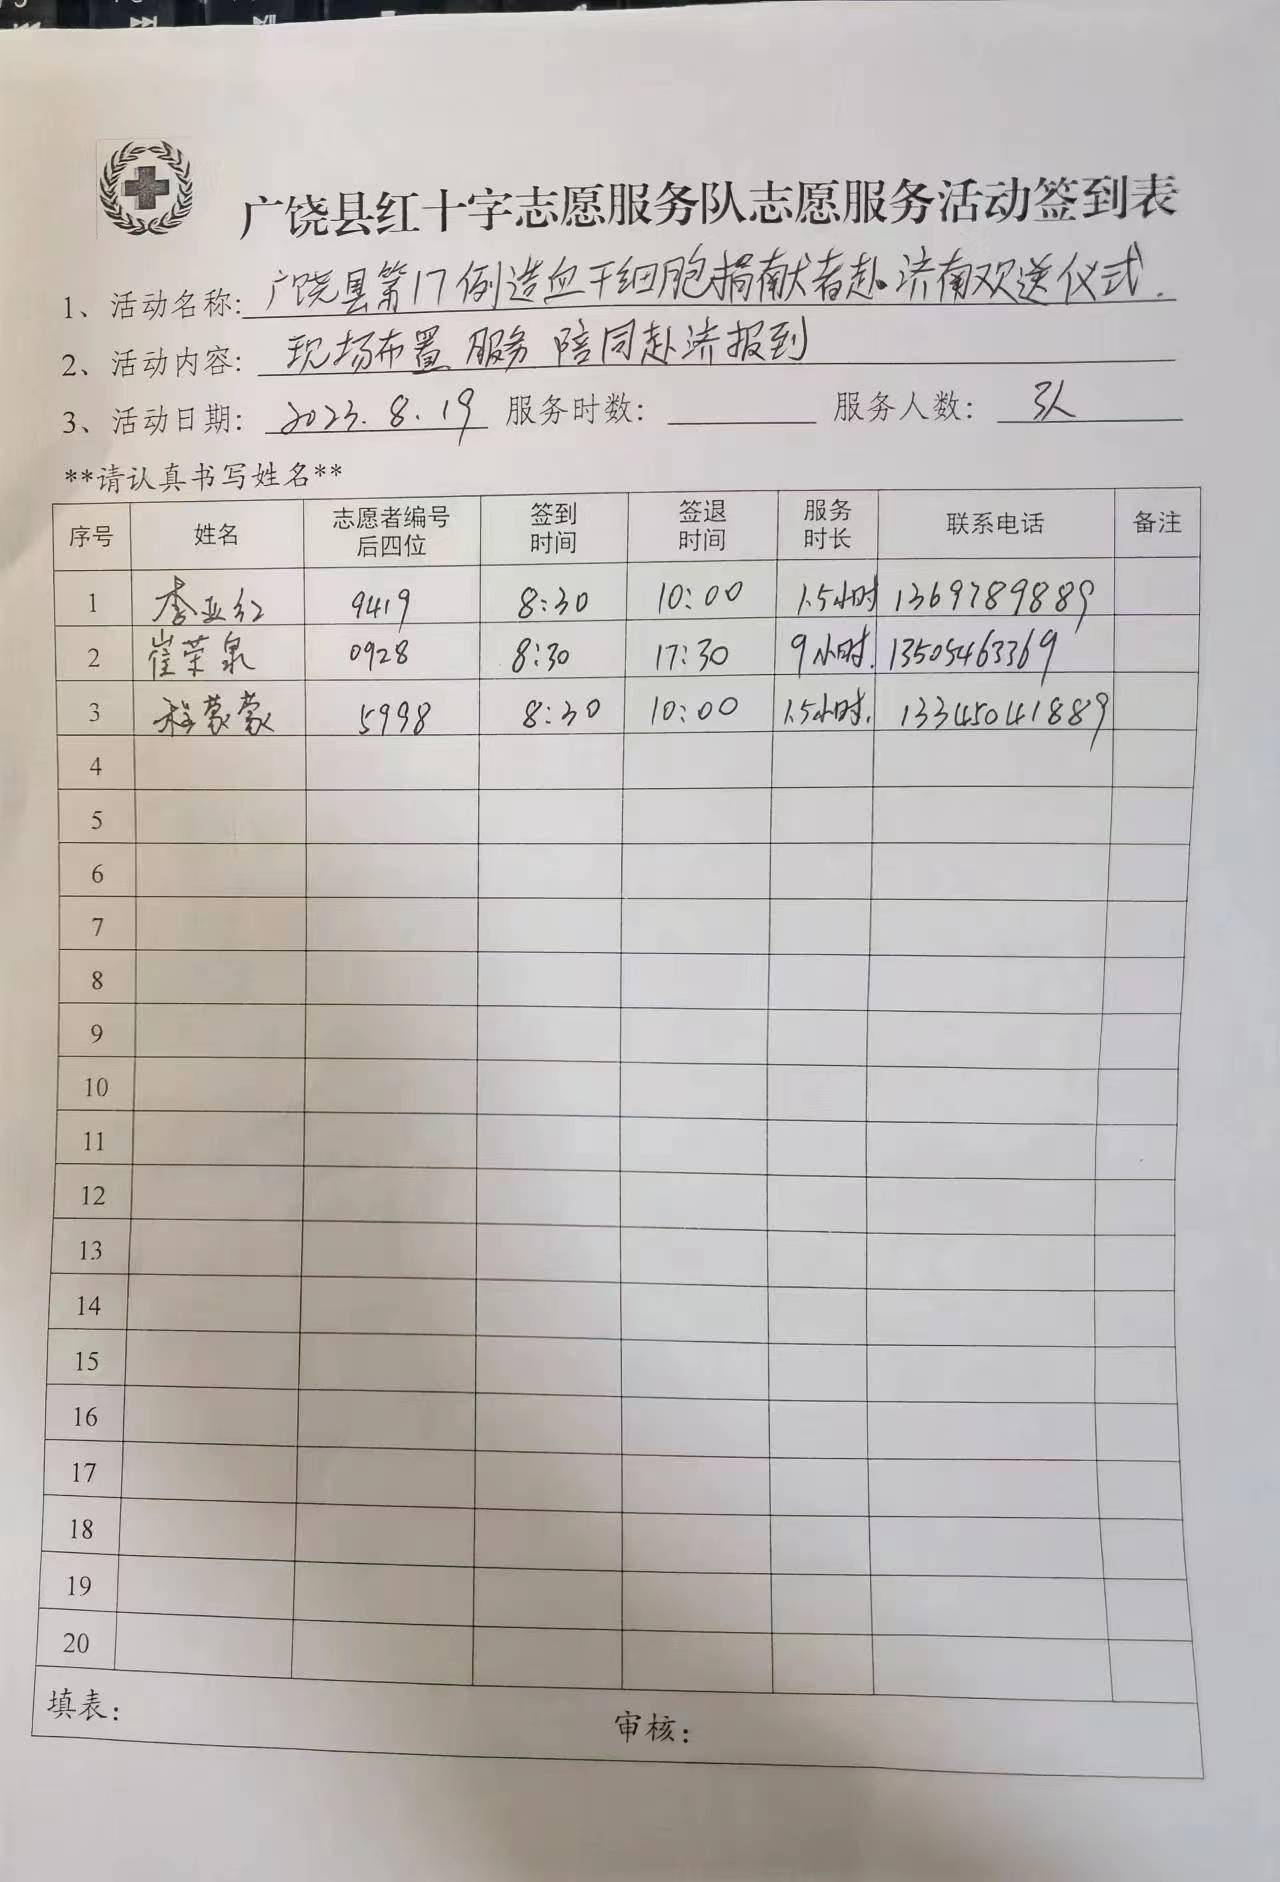 广饶县红十字志愿服务队志愿服务活动签到表
1、活动名称:广饶县第17例造血干细胞捐献者赴济南欢送仪式.
2、活动内容: 现场布置 服务 陪同赴济报到
3、活动日期: 2023.8.19 服务时数: 服务人数: 3人
**请认真书写姓名**
序号 姓名 志愿者编号后四位 签到时间 签退时间 服务时长 联系电话 备注
1 李亚红 9419 8:30 10:00 1.5小时 1369789889
2 崔荣泉 0928 8:30 17:30 9小时. 13505463369
3 程蒙蒙 5998 8:30 10:00 1.5小时. 13345041889
4
5
6
7
8
9
10
11
12
13
14
15
16
17
18
19
20
填表: 审核: